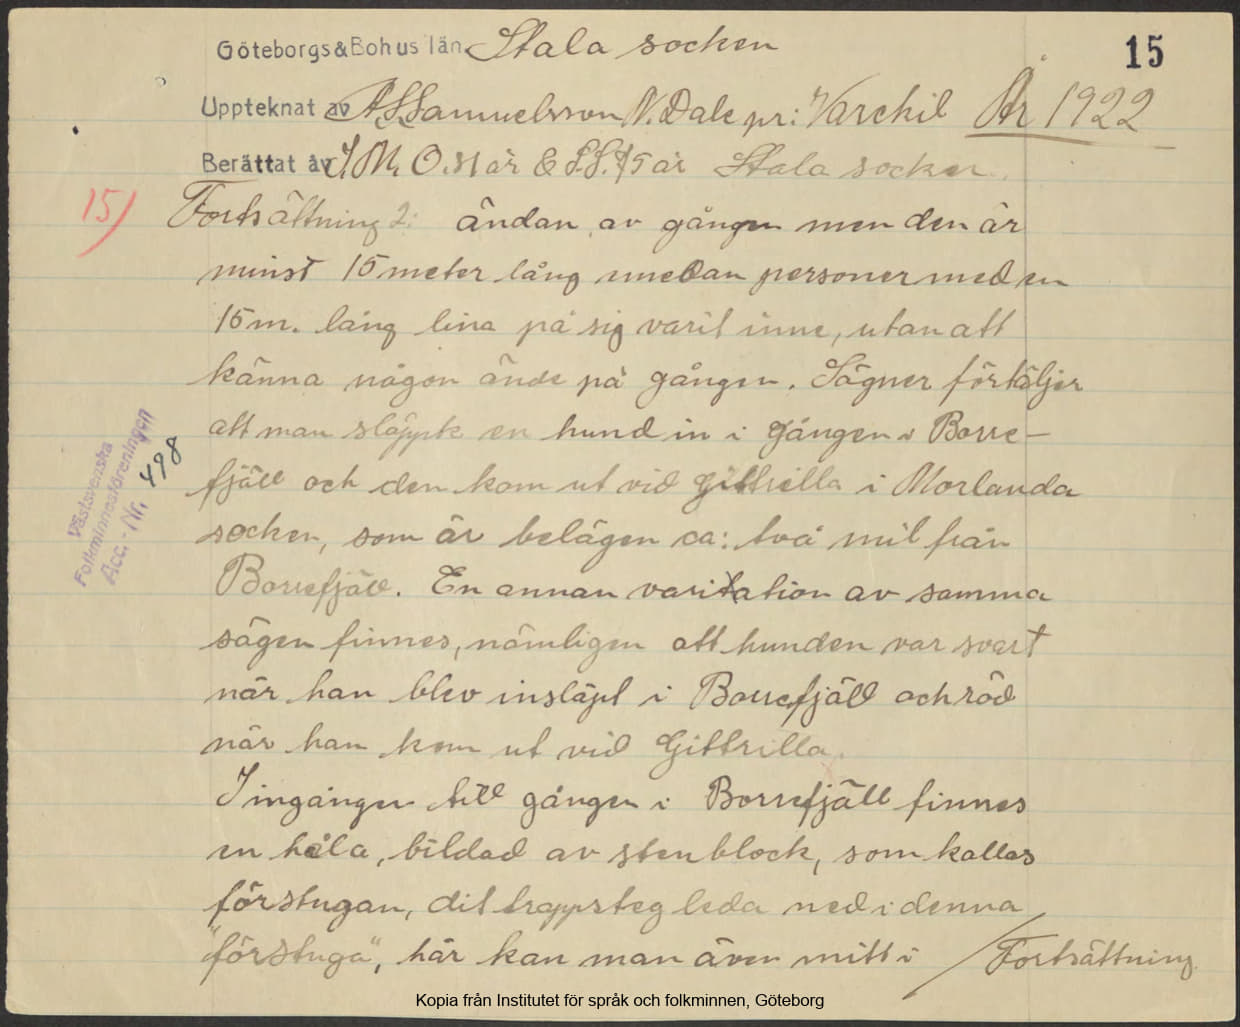 Göteborgs & Bohus län Stala socken
15
Uppteknat av A.S. Samuelsson N. Dale pr: Varekil År 1922
Berättat av J.M. O. år & S.S. 75 år Stala socken.
15)
Fortsättning 2: ändan av gången men den är
minst 15 meter lång medan personer med en
15 m. lång lina på sig varit inne, utan att
känna någon ände på gången. Sägner förtäljer
att man släppte en hund in i gången i Borre-
fjäll och den kom ut vid Gittrilla i Morlanda
socken, som är belägen ca: två mil från
Borrefjäll. En annan variation av samma
sägen finnes, nämligen att hunden var svart
när han blev insläpt i Borrefjäll och röd
när han kom ut vid Gittrilla.
I ingången till gången i Borrefjäll finnes
en håla, bildad av stenblock, som kallas
förstugan, dit trappsteg leda ned i denna
"förstuga", här kan man även mitt i / Fortsättning
Västsvenska
Folkminnesföreningen
Acc.-Nr. 498
Kopia från Institutet för språk och folkminnen, Göteborg